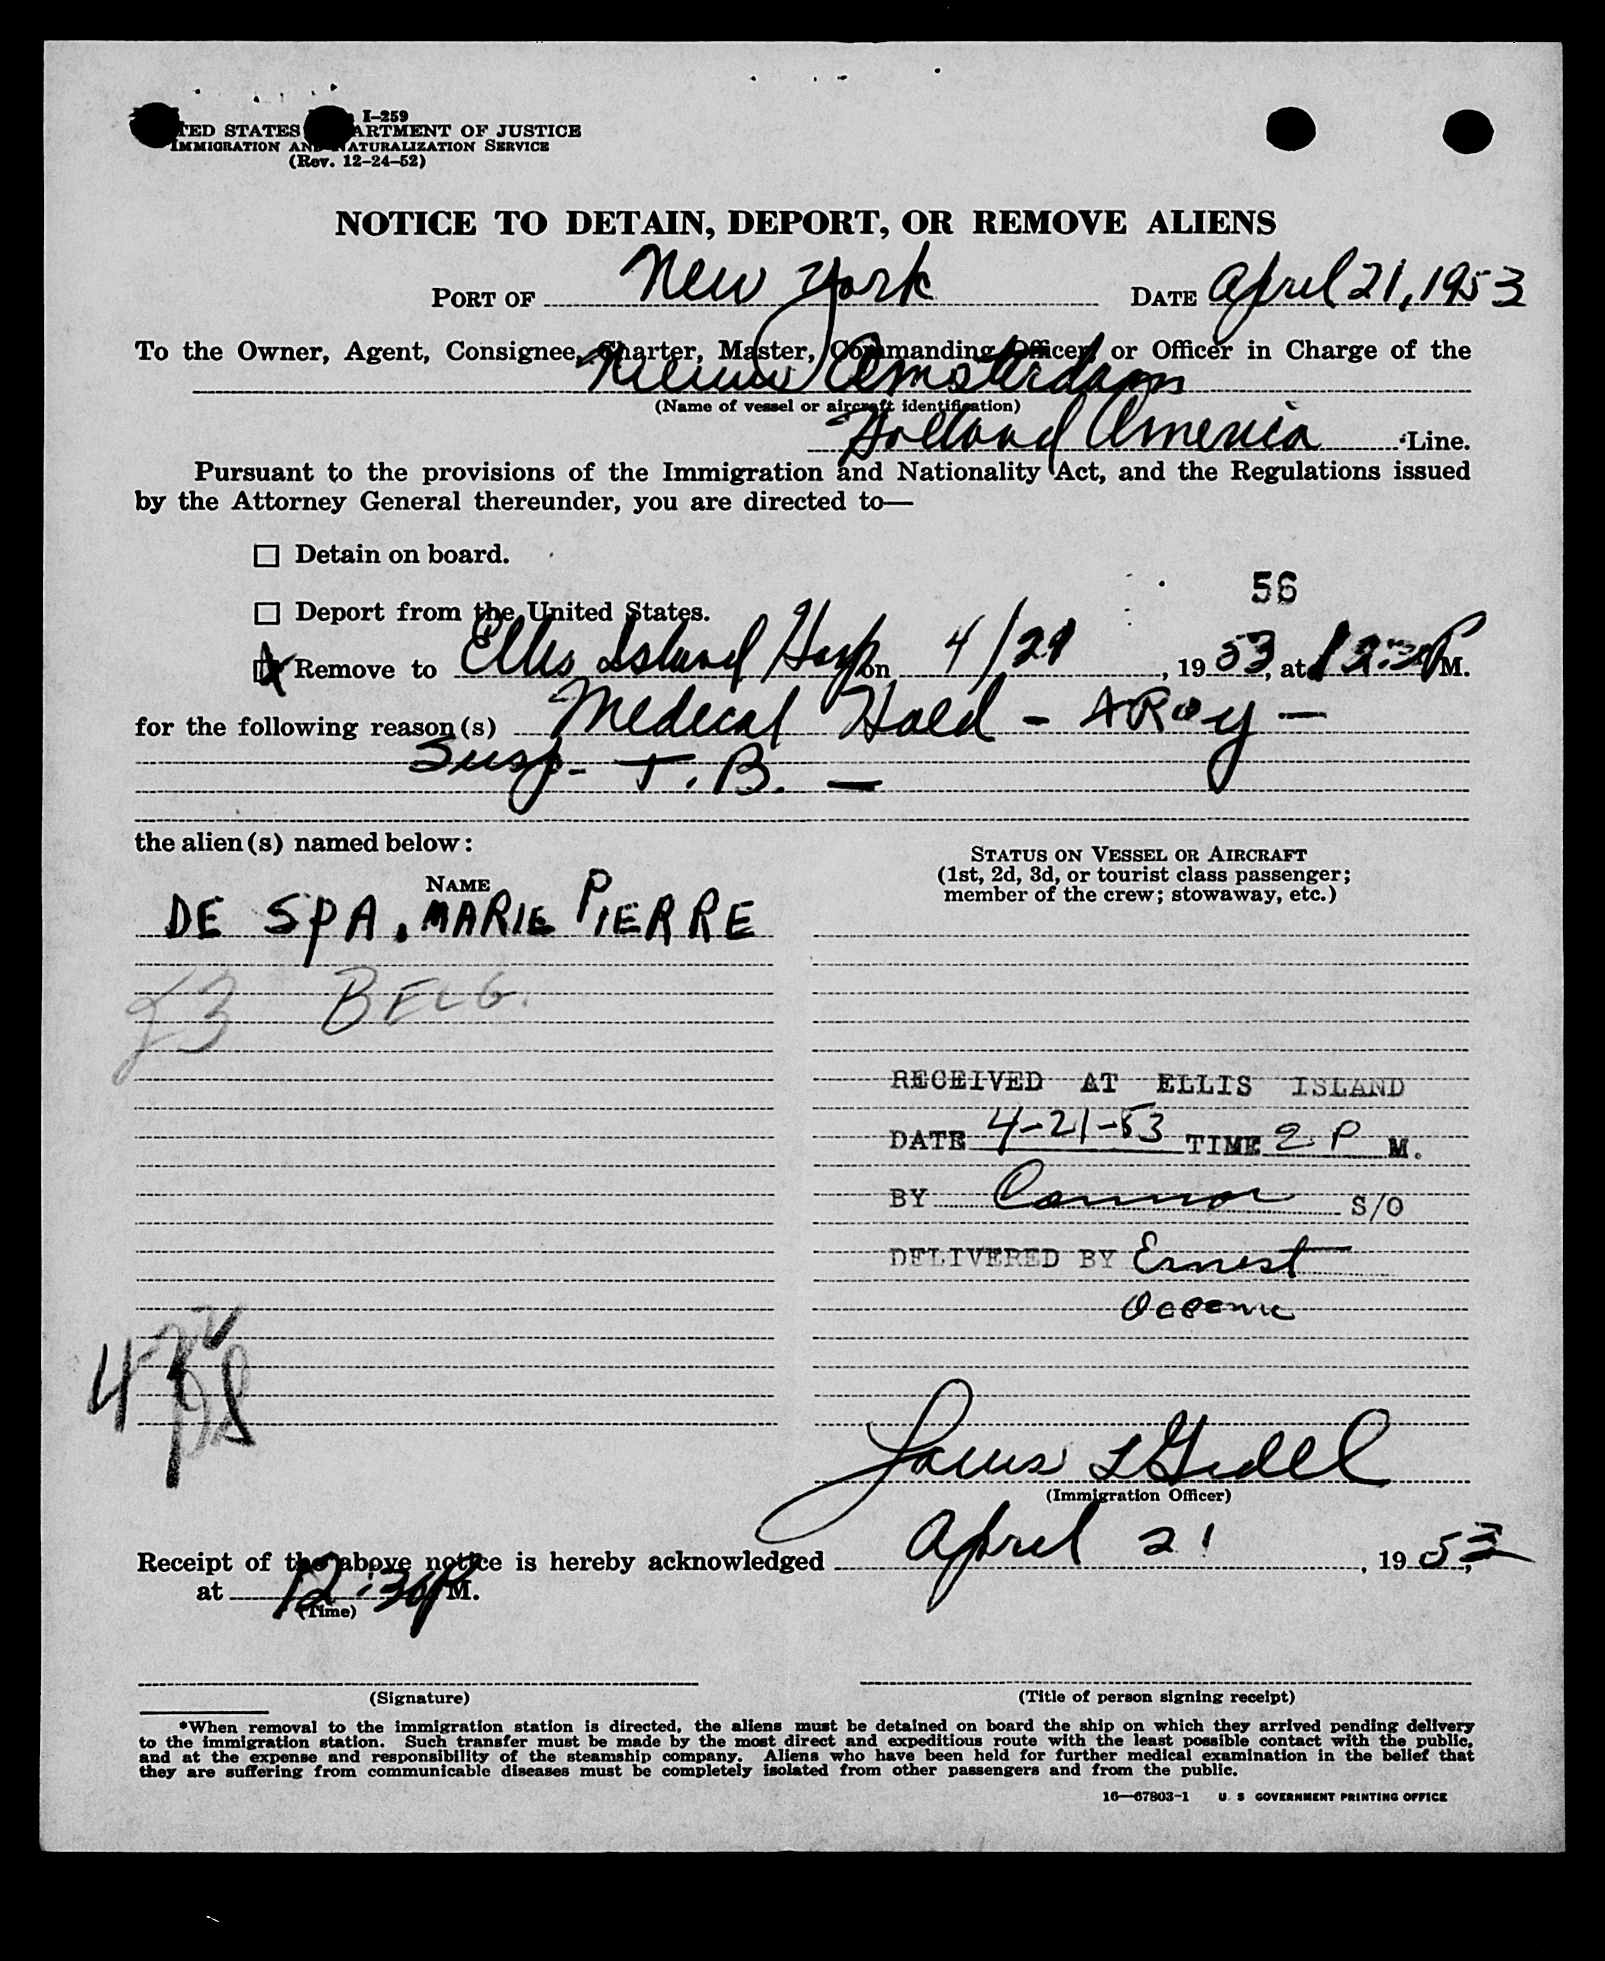 I-259
TED STATES ARTMENT OF JUSTICE
IMMIGRATION AND NATURALIZATION SERVICE
(Rev. 12-24-52)
NOTICE TO DETAIN, DEPORT, OR REMOVE ALIENS
PORT OF New York DATE April 21, 1953
To the Owner, Agent, Consignee, Charter, Master, Commanding Officer, or Officer in Charge of the
Nieuw Amsterdam
(Name of vessel or aircraft identification)
Holland America Line.
Pursuant to the provisions of the Immigration and Nationality Act, and the Regulations issued
by the Attorney General thereunder, you are directed to—
Detain on board.
56
Deport from the United States.
X Remove to Ellis Island Hosp on 4/21, 1953, at 12:30 P M.
for the following reason(s) Medical Hold - XRay -
Susp. T.B. -
the alien(s) named below:
STATUS ON VESSEL OR AIRCRAFT
(1st, 2d, 3d, or tourist class passenger;
member of the crew; stowaway, etc.)
NAME
DE SPA, MARIE PIERRE
BELG.
RECEIVED AT ELLIS ISLAND
DATE 4-21-53 TIME 2 P M.
BY Connor S/O
DELIVERED BY Ernest
Louis L Gidell
(Immigration Officer)
Receipt of the above notice is hereby acknowledged April 21, 1953,
at 12:30 P M.
(Time)
(Signature) (Title of person signing receipt)
*When removal to the immigration station is directed, the aliens must be detained on board the ship on which they arrived pending delivery
to the immigration station. Such transfer must be made by the most direct and expeditious route with the least possible contact with the public,
and at the expense and responsibility of the steamship company. Aliens who have been held for further medical examination in the belief that
they are suffering from communicable diseases must be completely isolated from other passengers and from the public.
16—67803-1 U. S GOVERNMENT PRINTING OFFICE